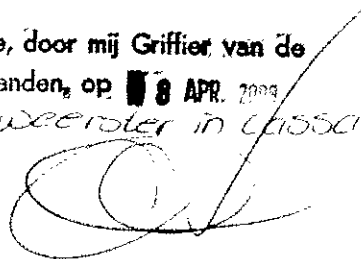 e, door mij Griffier van de
anden, op 8 APR. 2009
weerster in cassa